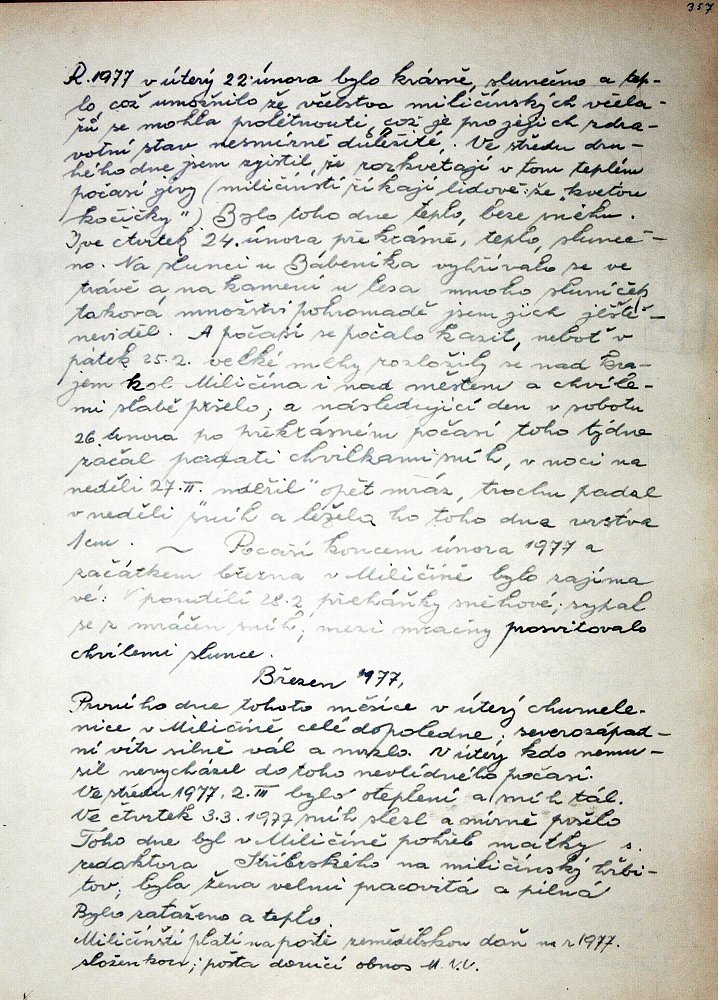 357
R. 1977 v úterý 22. února bylo krásně, slunečno a tep-
lo, což umožnilo že včelstva miličínských včela-
řů se mohla prolétnouti, což je pro jejich zdra-
votní stav nesmírně důležité. Ve středu dru-
hého dne jsem zjistil, že rozkvetají v tom teplém
počasí jívy (miličínští říkají lidově: že „kvetou
kočičky“) Bylo toho dne teplo, beze sněhu.
I ve čtvrtek 24. února překrásně, teplo, sluneč-
no. Na slunci u Bábeníka vyhřívalo se ve
trávě a na kameni u lesa mnoho sluníček
taková množství pohromadě jsem jich ještě
neviděl. A počasí se počalo kazit, neboť v
pátek 25.2. velké mlhy rozložily se nad kra-
jem kol Miličína i nad městem a chvíle-
mi slabě pršelo; a následující den v sobotu
26. února po překrásném počasí toho týdne
začal padati chvilkami sníh, v noci na
neděli 27.II. udeřil opět mráz, trochu padal
v neděli sníh a ležela ho toho dne vrstva
1 cm. — Počasí koncem února 1977 a
začátkem března v Miličíně bylo zajíma
vé: V pondělí 28.2 přeháňky sněhové; sypal
se z mráčen sníh; mezi mračny prosvitovalo
chvílemi slunce.
Březen 1977,
Prvního dne tohoto měsíce v úterý chumele-
nice v Miličíně celé dopoledne; severozápad-
ní vítr silně vál a mrzlo. V úterý kdo nemu-
sil nevycházel do toho nevlídného počasí.
Ve středu 1977, 2. III bylo oteplení a sníh tál.
Ve čtvrtek 3.3. 1977 sníh slezl a mírně pršelo
Toho dne byl v Miličíně pohřeb matky s.
redaktora Stříbrského na miličínský hřbi-
tov; byla žena velmi pracovitá a pilná
Bylo zataženo a teplo.
Miličínští platí na poště zemědělskou daň na r 1977.
složenkou; pošta doručí obnos M.N.V.